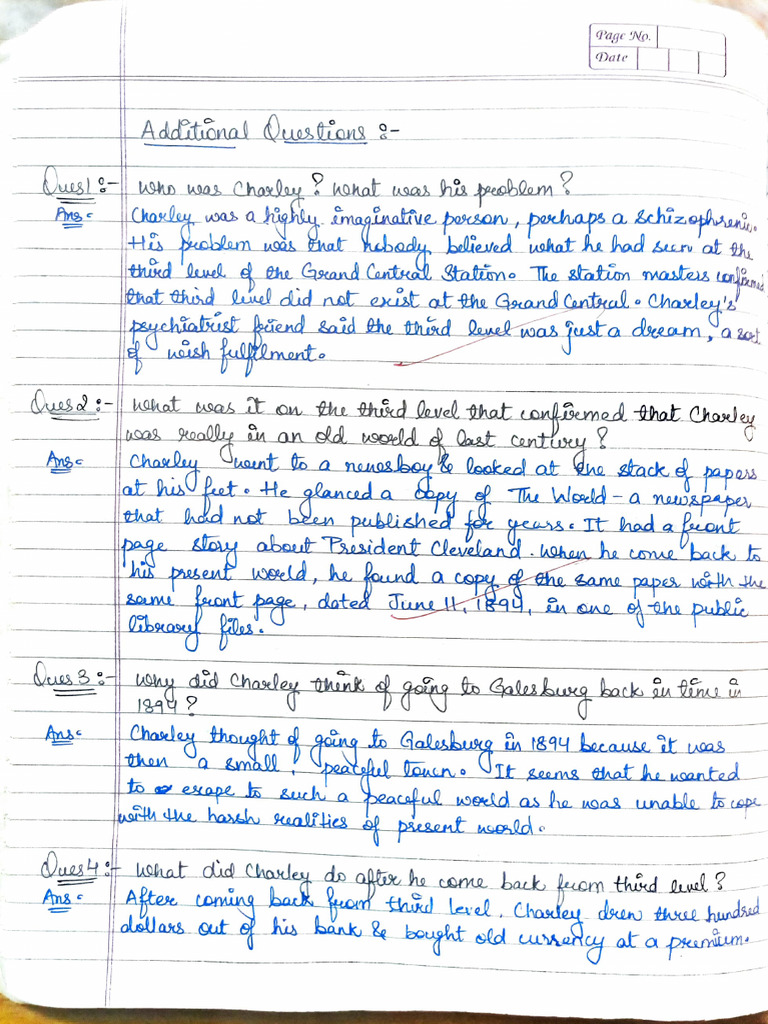 Page No.
Date
Additional Questions :-
Ques1 :- who was Charley? What was his problem?
Ans:- Charley was a highly imaginative person, perhaps a schizophrenic.
His problem was that nobody believed what he had seen at the
third level of the Grand Central Station. The station masters confirmed
that third level did not exist at the Grand Central. Charley's
psychiatrist friend said the third level was just a dream, a sort
of wish fulfilment.
Ques 2 :- what was it on the third level that confirmed that Charley
was really in an old world of last century?
Ans:- Charley went to a newsboy & looked at the stack of papers
at his feet. He glanced a copy of The World - a newspaper
that had not been published for years. It had a front
page story about President Cleveland. When he come back to
his present world, he found a copy of the same paper with the
same front page, dated June 11, 1894, in one of the public
library files.
Ques 3 :- why did Charley think of going to Galesburg back in time in
1894?
Ans:- Charley thought of going to Galesburg in 1894 because it was
then a small, peaceful town. It seems that he wanted
to escape to such a peaceful world as he was unable to cope
with the harsh realities of present world.
Ques 4 :- What did Charley do after he come back from third level?
Ans:- After coming back from third level, Charley dren three hundred
dollars out of his bank & bought old currency at a premium.